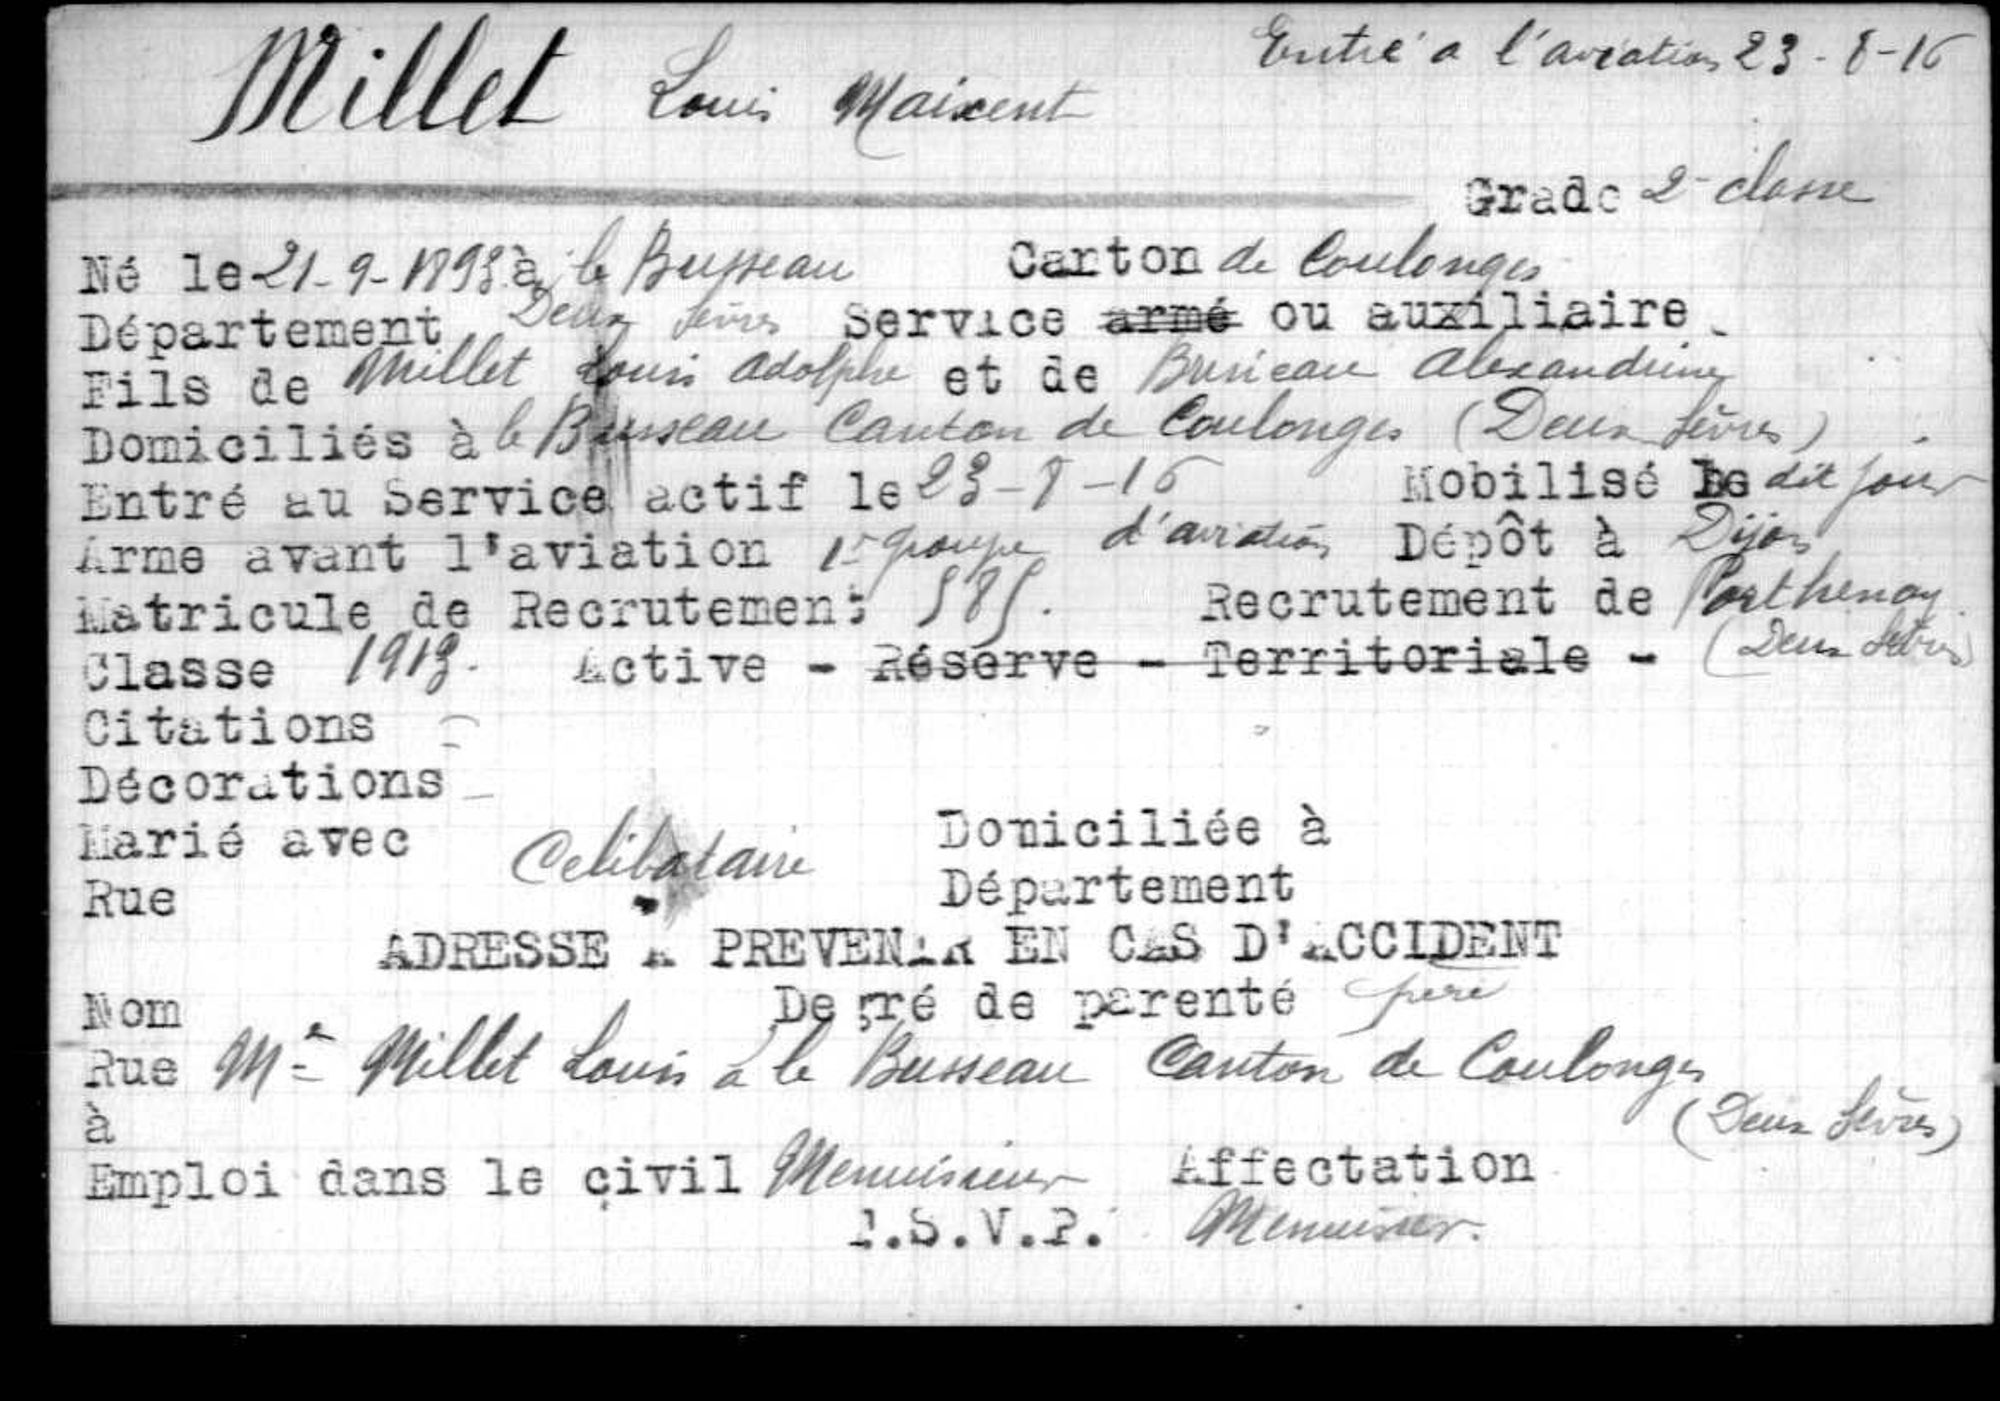 Millet Louis Maixent Entré a l'aviation 23-8-16
Grade 2e classe
Né le 21-9-1893 à le Busseau Canton de Coulonges
Département Deux Sèvres Service armé ou auxiliaire
Fils de Millet Louis Adolphe et de Alexandrine
Domiciliés à le Busseau Canton de Coulonges (Deux Sèvres)
Entré au Service actif le 23-8-16 Mobilisé le dit jour
Arme avant l'aviation 1er groupe d'aviation Dépôt à Dijon
Matricule de Recrutement 585. Recrutement de Parthenay
Classe 1913. Active - Réserve - Territoriale - (Deux Sèvres)
Citations -
Décorations -
Marié avec Celibataire Domiciliée à
Rue Département
ADRESSE A PREVENIR EN CAS D'ACCIDENT
Nom Degré de parenté père
Rue Mr Millet Louis à le Busseau Canton de Coulonges
à (Deux Sèvres)
Emploi dans le civil Menuisier Affectation
T.S.V.P. Menuisier.